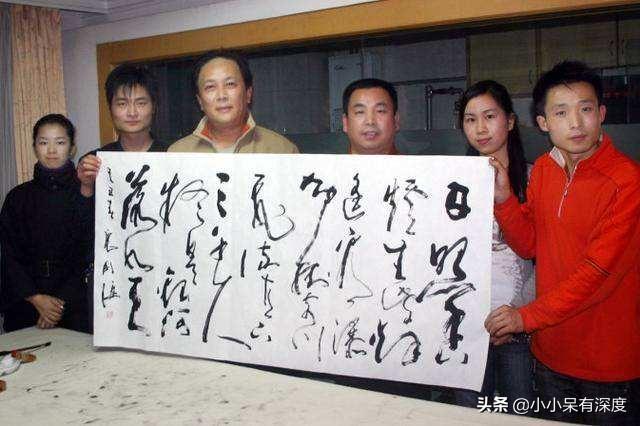 日照香
爐生紫烟
遥看瀑
布挂前川
飛流直下
三千尺
疑是銀河
落九天
头条 @小小呆有深度